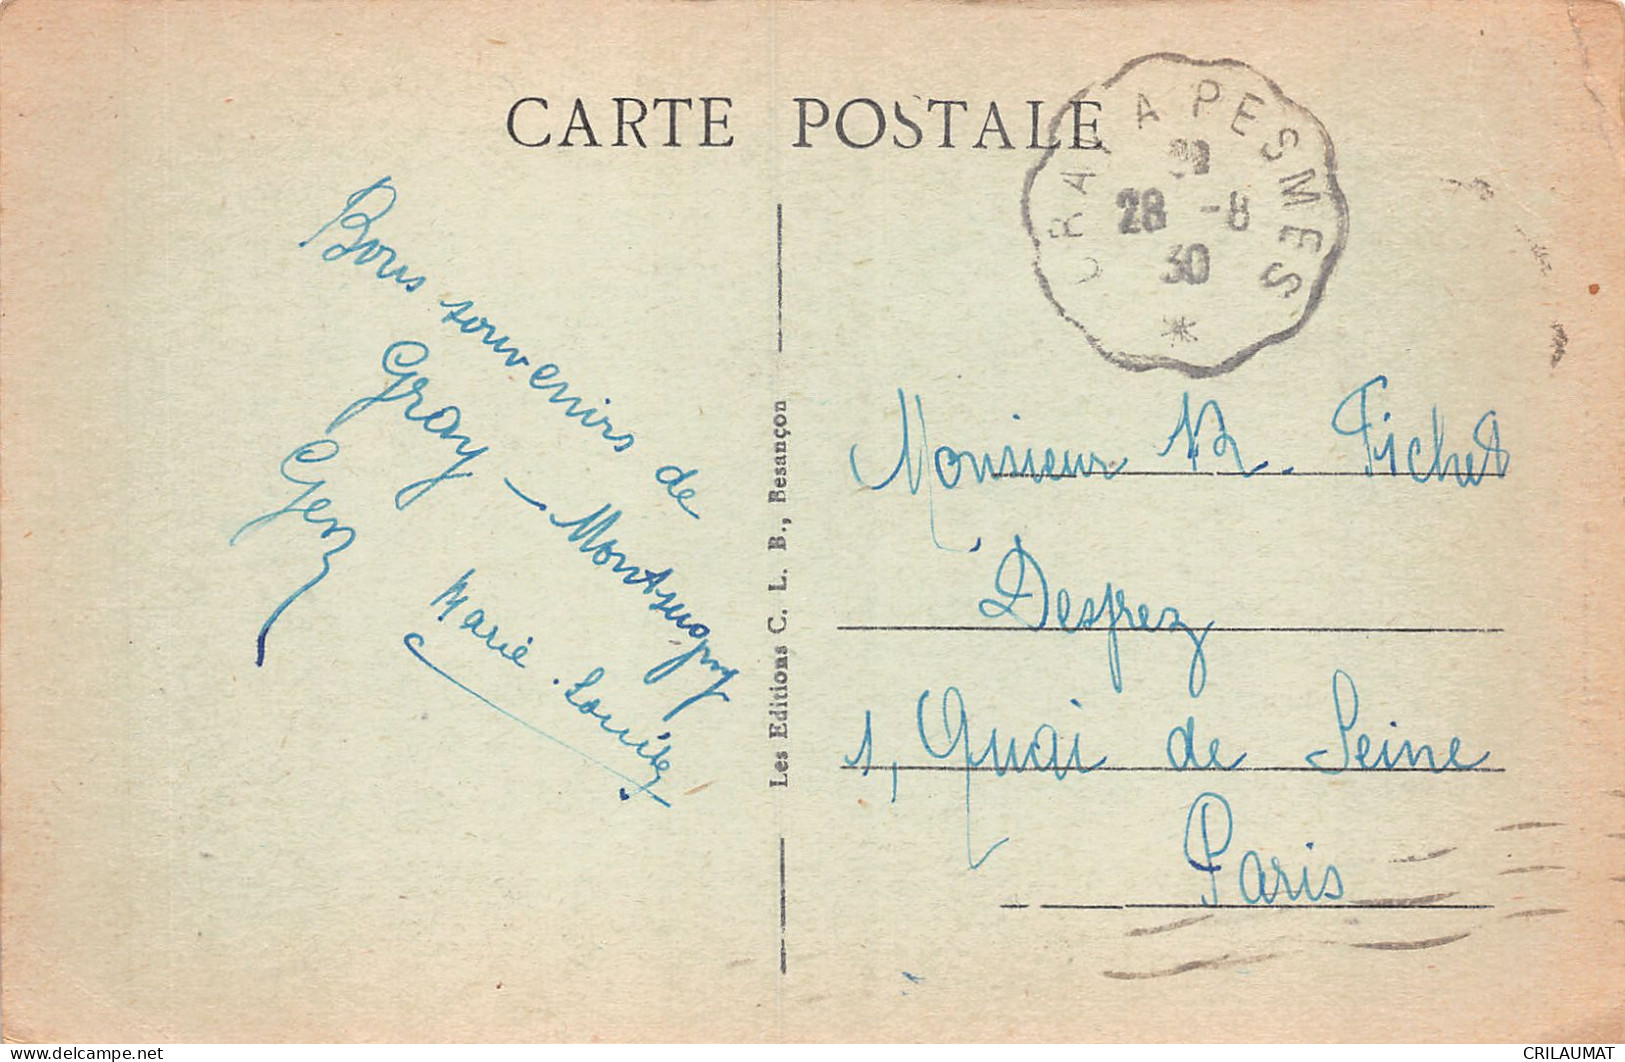 CARTE POSTALE
GRAY A PESMES
28 -8
30
Bons souvenirs de
Gray - Montsugny
Gen
Marie-Louise
Les Editions C. L. B., Besançon
Monsieur R. Fichet
Desprez
1, Quai de Seine
Paris
CRILAUMAT